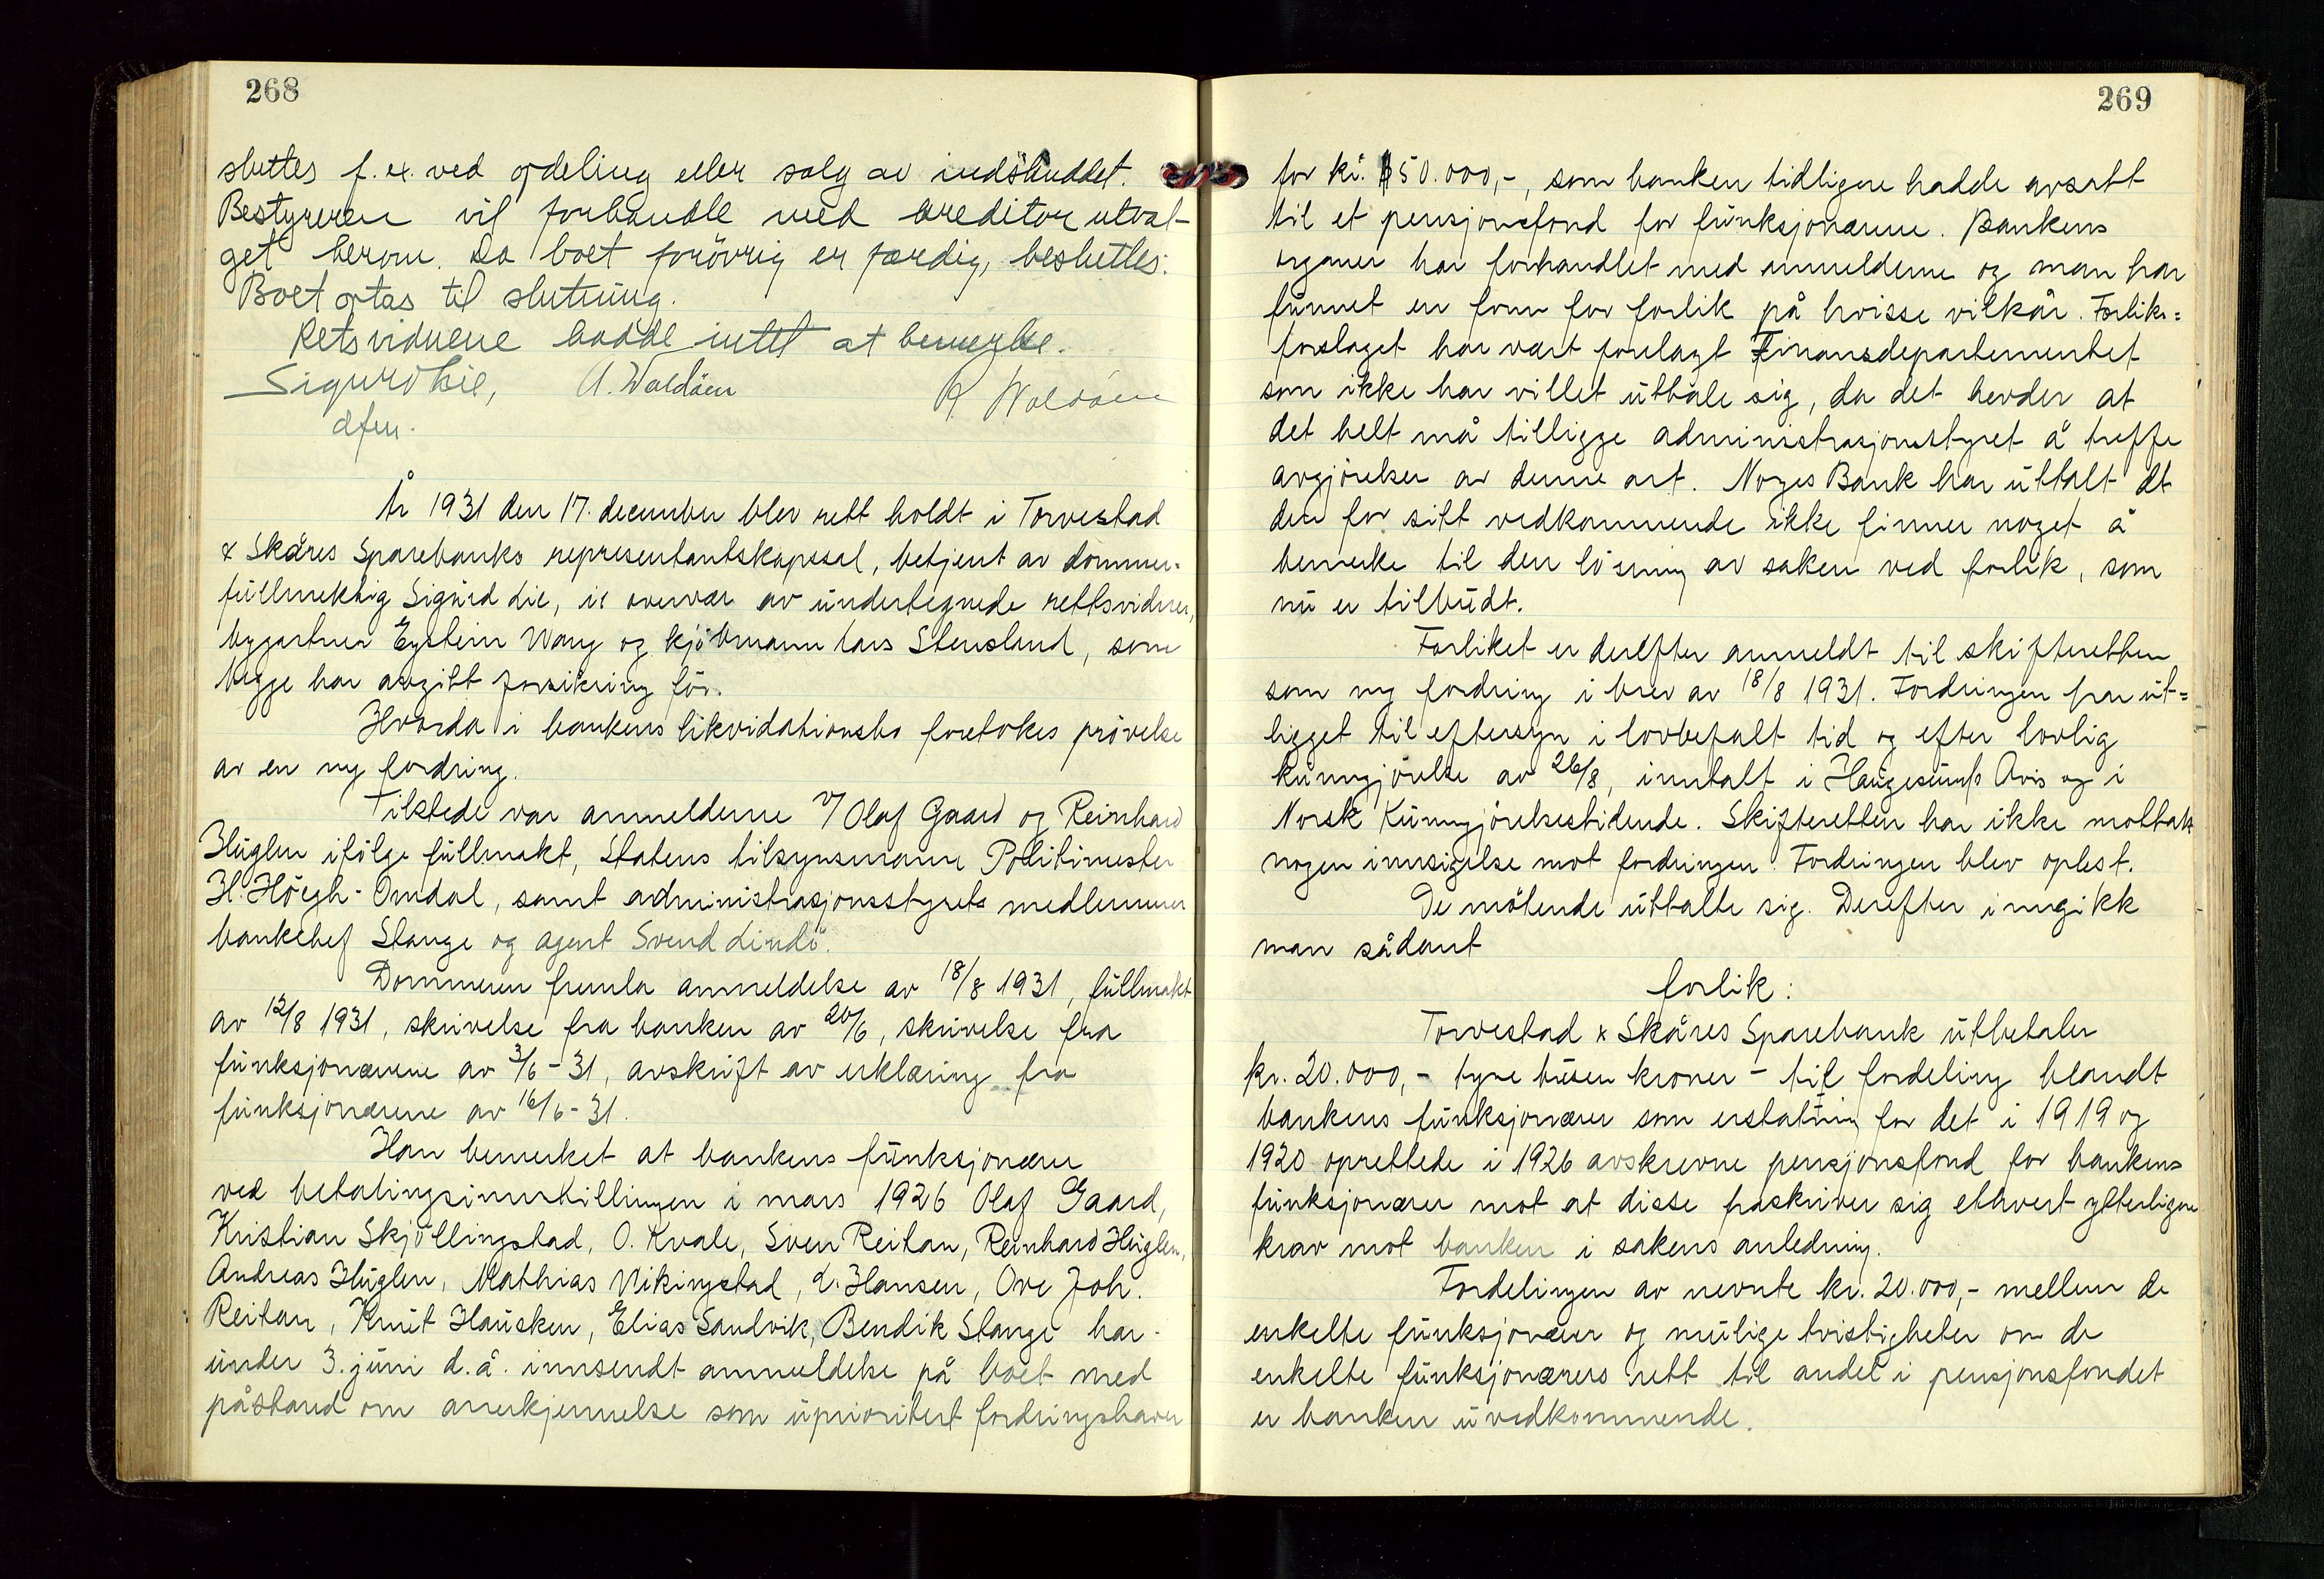 268
sluttes f. ex. ved opdeling eller salg av indskuddet.
Bestyreren vil forhandle med kreditorutval-
get herom. Da boet forövrig er færdig, besluttes:
Boet optas til slutning.
Retsvidnene hadde intet at bemerke.
Sigurd Lie, A. Waldöen
dfm.
År 1931 den 17. december blev rett holdt i Torvestad
& Skåres Sparebanks representantskapssal, betjent av dommer-
fullmektig Sigurd Lie, i overvær av undertegnede rettsvidner,
bygartner Eystein Wang og kjöbmann Lars Stensland, som
begge har avgitt forsikring för.
Hvorda i bankens likvidationsbo foretokes prövelse
av en ny fordring.
Tilstede var anmelderne v/ Olaf Gaard og Reinhard
Huglen ifölge fullmakt, Statens tilsynsmann Politimester
H. Höegh-Omdal, samt administrasjonsstyrets medlemmer
bankchef Stange og agent Svend Lindö.
Dommeren fremla anmeldelse av 18/8 1931, fullmakt
av 12/8 1931, skrivelse fra banken av 20/6, skrivelse fra
funksjonærene av 3/6-31, avskrift av erklæring fra
funksjonærene av 16/6-31.
Han bemerket at bankens funksjonærer
ved betalingsinnstillingen i mars 1926 Olaf Gaard,
Kristian Skjöllingstad, O. Kvale, Sven Reitan, Reinhard Huglen,
Andreas Huglen, Mathias Vikingstad, L. Hansen, Ove Joh.
Reitan, Knut Hausken, Elias Sandvik, Bendik Stange har
under 3. juni d.å. innsendt anmeldelse på boet med
påstand om anerkjennelse som uprioritert fordringshaver
269
for kr. 50.000,-, som banken tidligere hadde avsatt
til et pensjonsfond for funksjonærene. Bankens
organer har forhandlet med anmelderne og man har
funnet en form for forlik på hvisse vilkår. Forliks=
forslaget har vært forelagt Finansdepartementet
som ikke har villet uttale sig, da det hevder at
det helt må tilligge administrasjonsstyret å treffe
avgjörelser av denne art. Norges Bank har uttalt at
den for sitt vedkommende ikke finner noget å
bemerke til den lösning av saken ved forlik, som
nu er tilbudt.
Forliket er derefter anmeldt til skifteretten
som ny fordring i brev av 18/8 1931. Fordringen har ut=
ligget til eftersyn i lovbefalt tid og efter lovlig
kunngjörelse av 26/8, inntatt i Haugesunds Avis og i
Norsk Kunngjörelsestidende. Skifteretten har ikke mottatt
nogen innsigelse mot fordringen. Fordringen blev oplest.
De mötende uttalte sig. Derefter inngikk
man sådant
forlik:
Torvestad & Skåres Sparebank utbetaler
kr. 20.000,- tyve tusen kroner - til fordeling blandt
bankens funksjonærer som erstatning for det i 1919 og
1920 oprettede i 1926 avskrevne pensjonsfond for bankens
funksjonærer mot at disse fraskriver sig ethvert ytterligere
krav mot banken i sakens anledning.
Fordelingen av nevnte kr. 20.000,- mellem de
enkelte funksjonærer og mulige tvistigheter om de
enkelte funksjonærers rett til andel i pensjonsfondet
er banken uvedkommende.